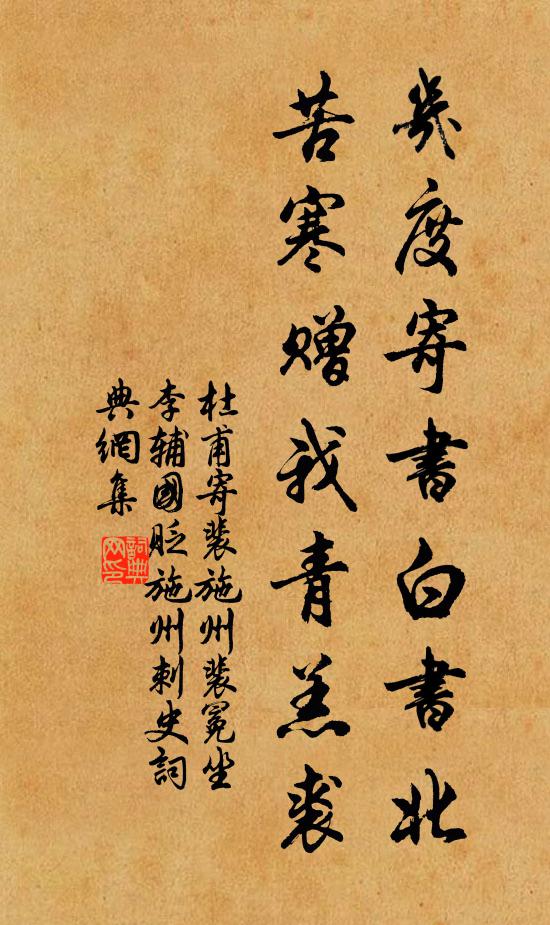 幾度寄書白書北
苦寒贈我青羔裘
杜甫寄裴施州裴冕坐
李輔國貶施州刺史詞
典網集
詞典
网印